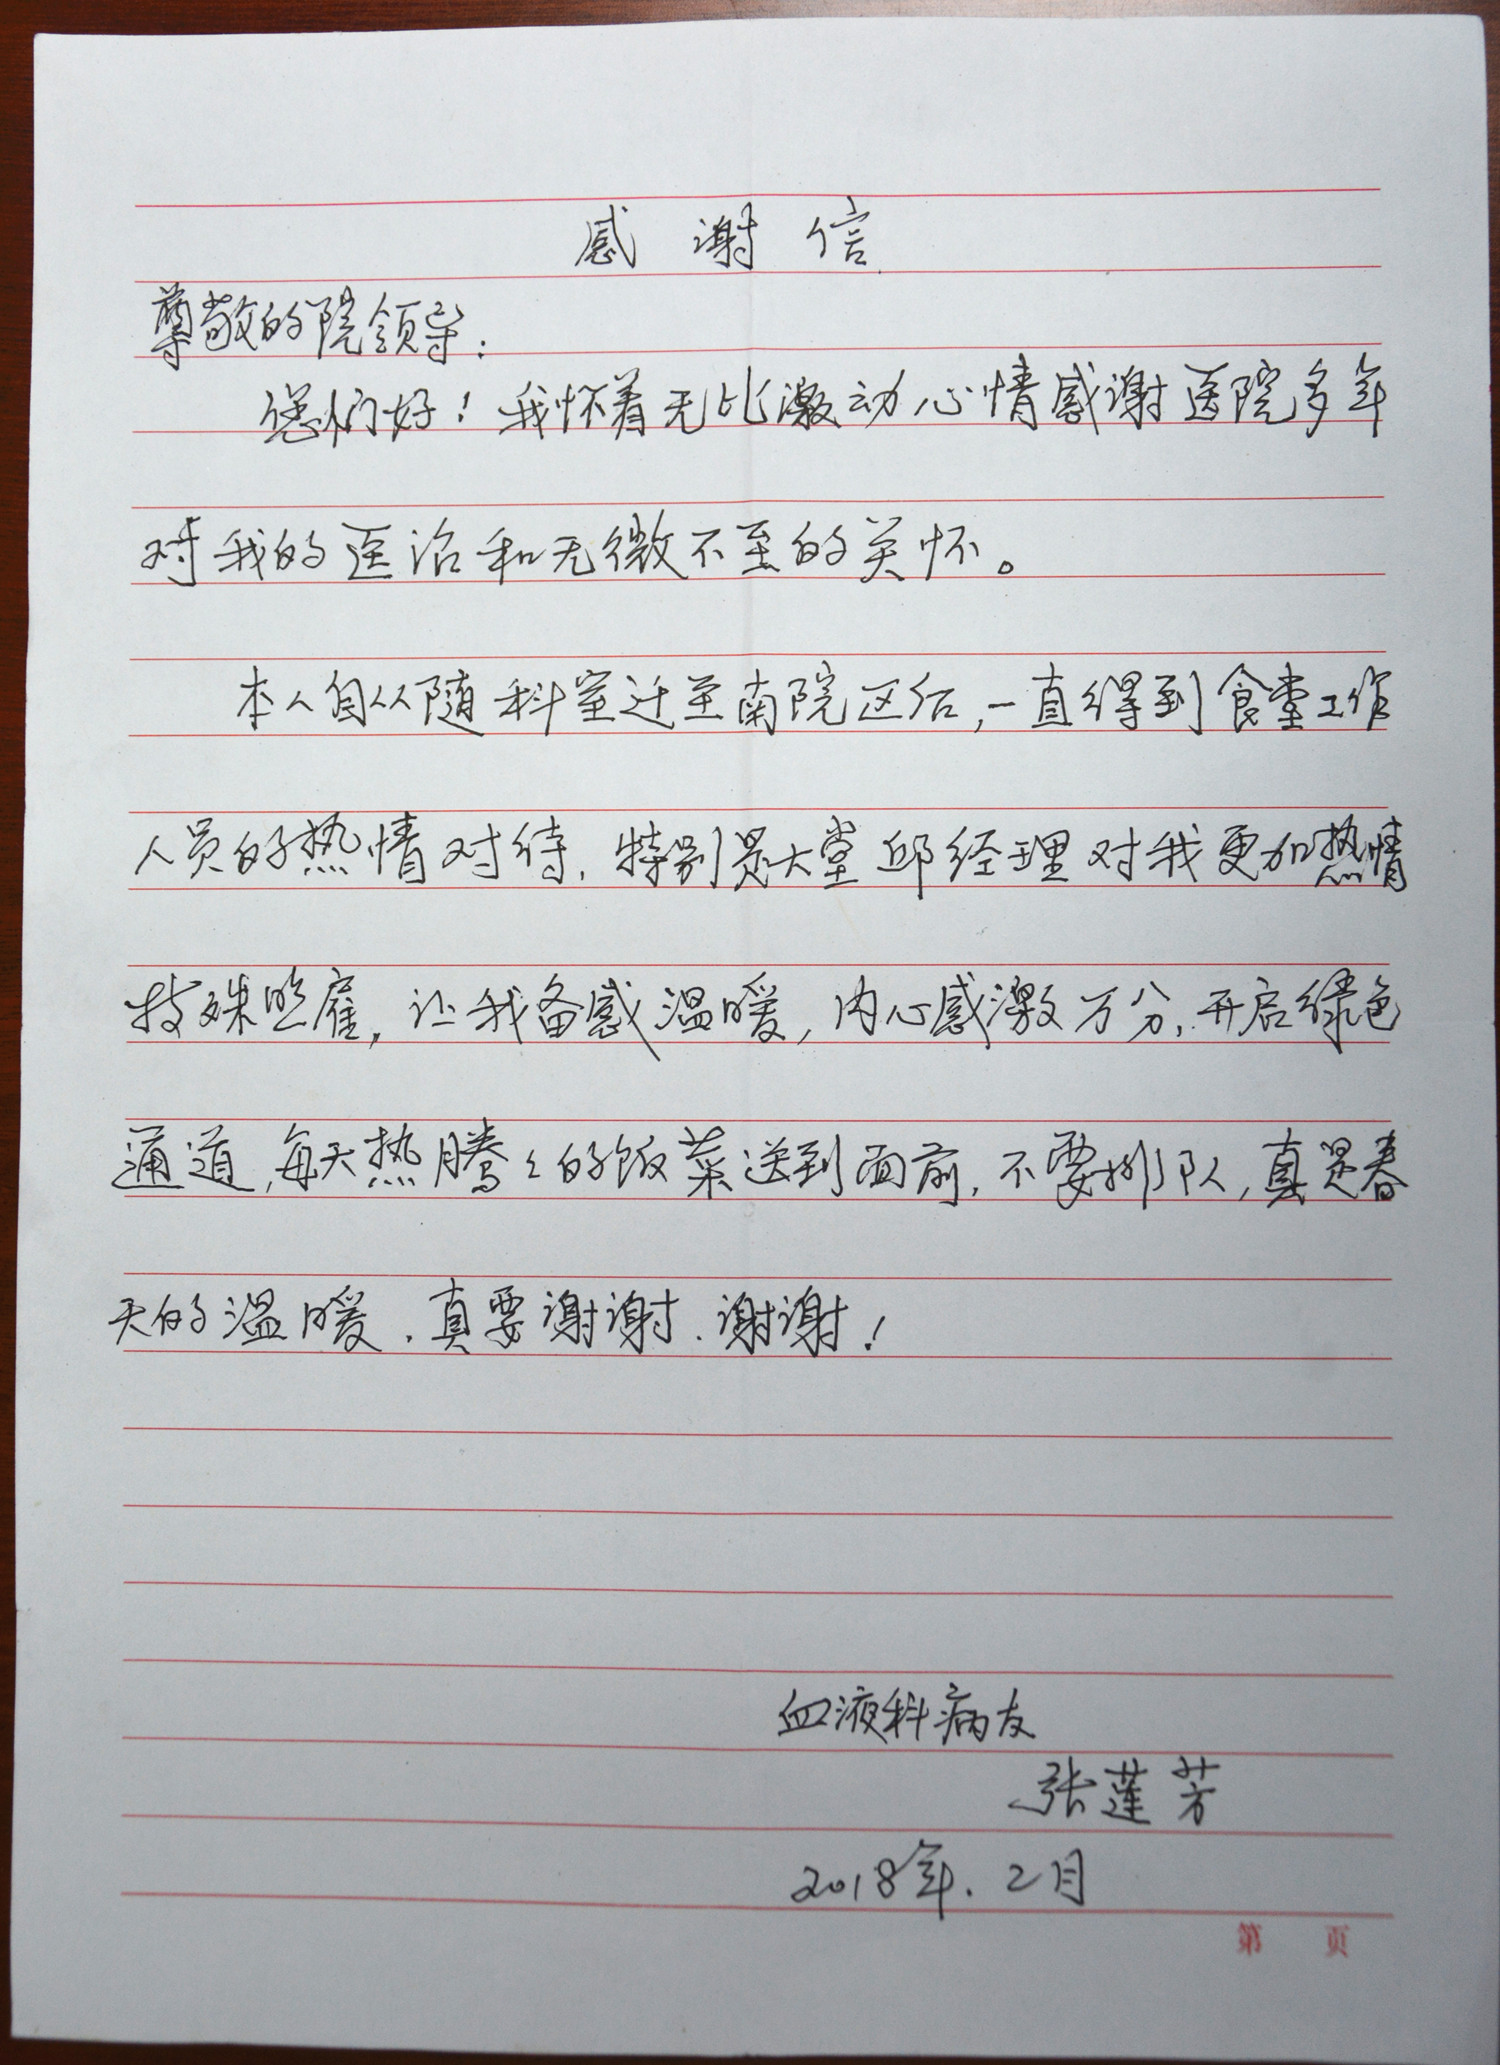 感谢信
尊敬的院领导：
您们好！我怀着无比激动心情感谢医院多年
对我的医治和无微不至的关怀。
本人自从随科室迁至南院区后，一直得到食堂工作
人员的热情对待，特别是大堂邱经理对我更加热情
特殊照雇，让我备感温暖，内心感激万分，开启绿色
通道，每天热腾々的饭菜送到面前，不要排队，真是春
天的温暖．真要谢谢．谢谢！
血液科病友
张莲芳
2018年．2月
第 页